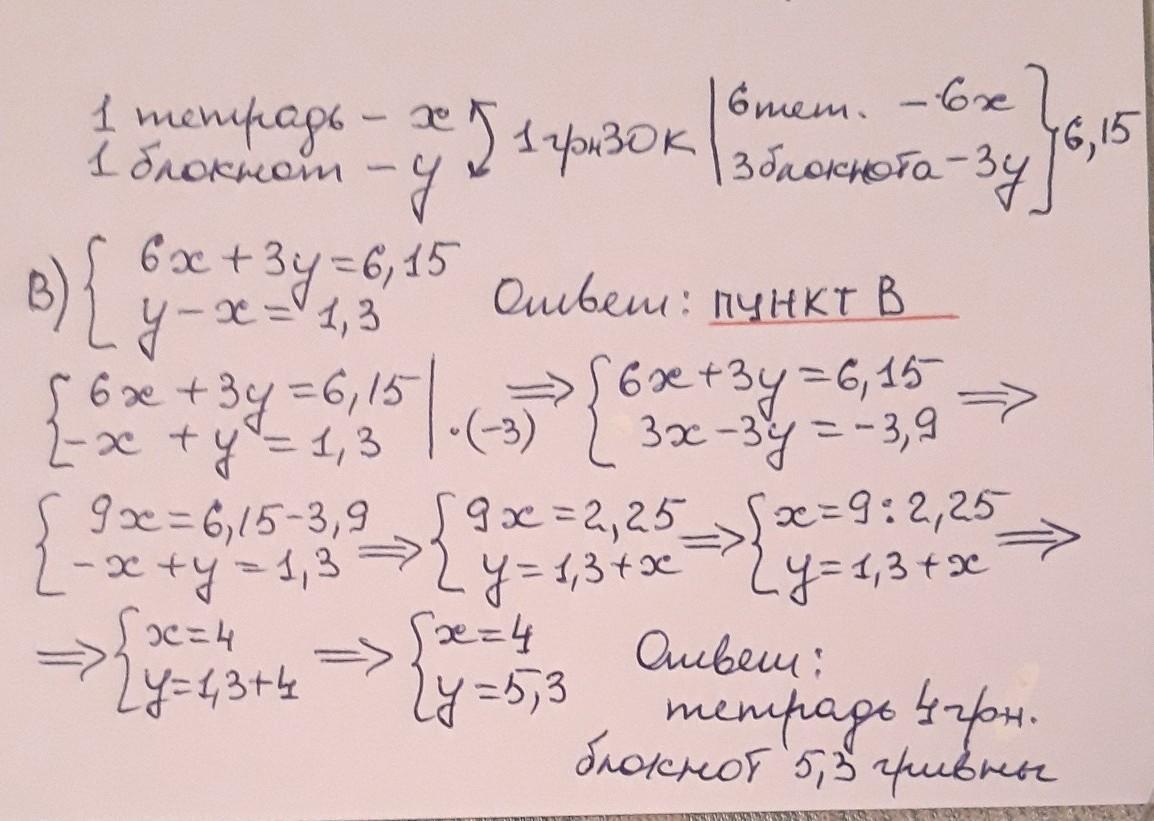 1 тетрадь – x
1 блокнот – y
1 грн 30 к
6 тет. – 6x
3 блокнота – 3y
6,15
В) { 6x + 3y = 6,15
y – x = 1,3
Ответ: ПУНКТ В
{ 6x + 3y = 6,15
-x + y = 1,3 | ·(-3)
⇒ { 6x + 3y = 6,15
3x – 3y = -3,9 ⇒
{ 9x = 6,15 – 3,9
-x + y = 1,3
⇒ { 9x = 2,25
y = 1,3 + x
⇒ { x = 9 : 2,25
y = 1,3 + x ⇒
⇒ { x = 4
y = 1,3 + 4
⇒ { x = 4
y = 5,3
Ответ:
тетрадь 4 грн.
блокнот 5,3 гривны